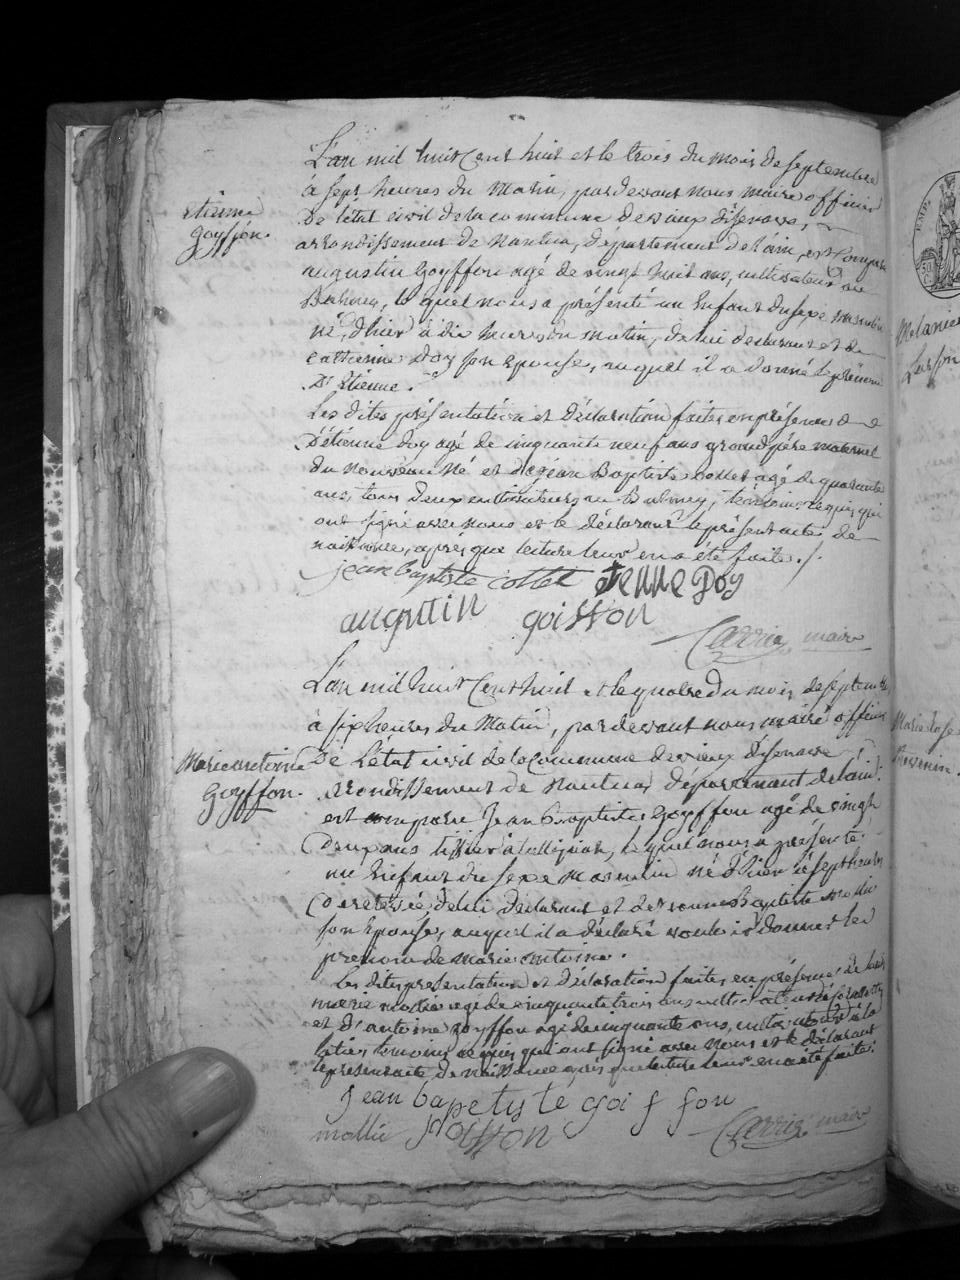 L'an mil huit Cent huit et le trois du mois de septembre
à sept heures du Matin, pardevant nous maire officier
De l'état civil de la commune de vaux disenave,
arrondissement de nantua, département de l'ain, est Comparu
augustin Goyffon agé de vingt huit ans, cultivateur au
Balmey, le quel nous a présenté un Enfant du sexe masculin
né d'hier à dix heures du matin, de lui declarant et de
catherine Doy son Epouse, auquel il a donné le prénom
D'Etienne.
Les dites présentation et Déclaration faites en présence de
D'étienne Doy agé de cinquante neuf ans grand père maternel
du nouveau né et de jean Baptiste Collet agé de quarante
ans, tous deux cultivateurs au Balmey, témoins requis qui
ont signé avec nous et le déclarant le présent acte de
naissance, après que lecture leur en a été faite./.
etienne
goyffon.
jean baptiste collet etienne Doy
augustin goisson
Carrier maire
L'an mil huit Cent huit et le quatre du mois de septembre
à six heures du Matin, pardevant nous maire officier
De l'état civil de la Commune de vieux disenave
arrondissement de Nantua, département de l'ain,
est comparu Jean Baptiste Goyffon agé de vingt
Deux ans tissier à le quel nous a présenté
un Enfant du sexe Masculin né d'hier à sept heures
Du de lui déclarant et de Baptiste Mollie
son Epouse, auquel il a déclaré vouloir donner le
prenom de Marie antoine.
Les dites presentation et Déclaration faites en présence de
marie mollie agé de cinquante trois ans cultivateur
et d'antoine goyffon agé de cinquante ans, à la
témoins requis qui ont signé avec nous et le déclarant
le présent acte de Naissance après que lecture leur en a été faite.
Marie antoine
Goyffon.
jean bapetiste goiffon
mollie goisson
Carrier maire
EMP.
50
C.
Melanie